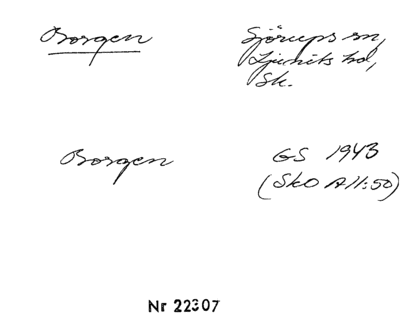 Borgen
Sjörups sn,
Ljunits hd,
Sk.
Borgen
GS 1943
(SkO A11:50)
Nr 22307